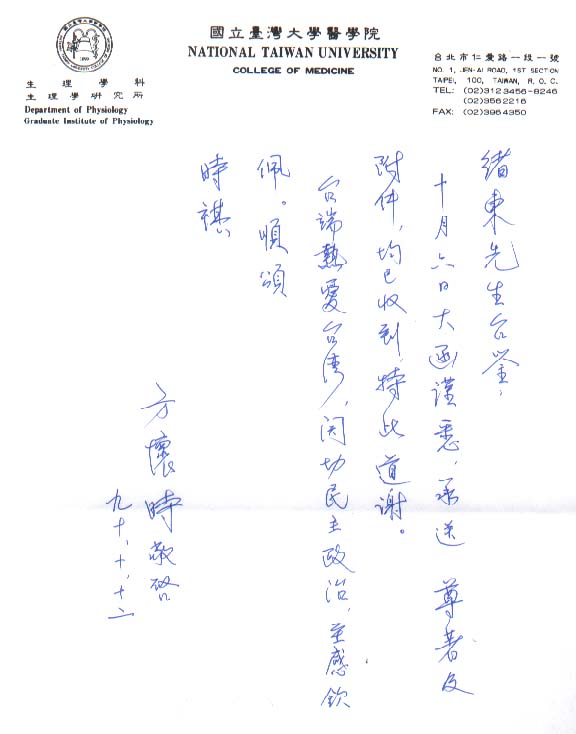 國立臺灣大學醫學院
NATIONAL TAIWAN UNIVERSITY
COLLEGE OF MEDICINE
生理學科
生理學研究所
Department of Physiology
Graduate Institute of Physiology
台北市仁愛路一段一號
NO. 1, JEN-AI ROAD, 1ST SECTION
TAIPEI, 100, TAIWAN, R. O. C.
TEL: (02)3123456-8246
(02)3562216
FAX: (02)3964350
緒東先生台鑒:
十月六日大函謹悉,承送 尊著及
附件,均已收到,特此道謝。
台端熱愛台湾,関切民主政治,至感欽
佩。順頌
時祺
方懷時敬啓
九十、十、十二